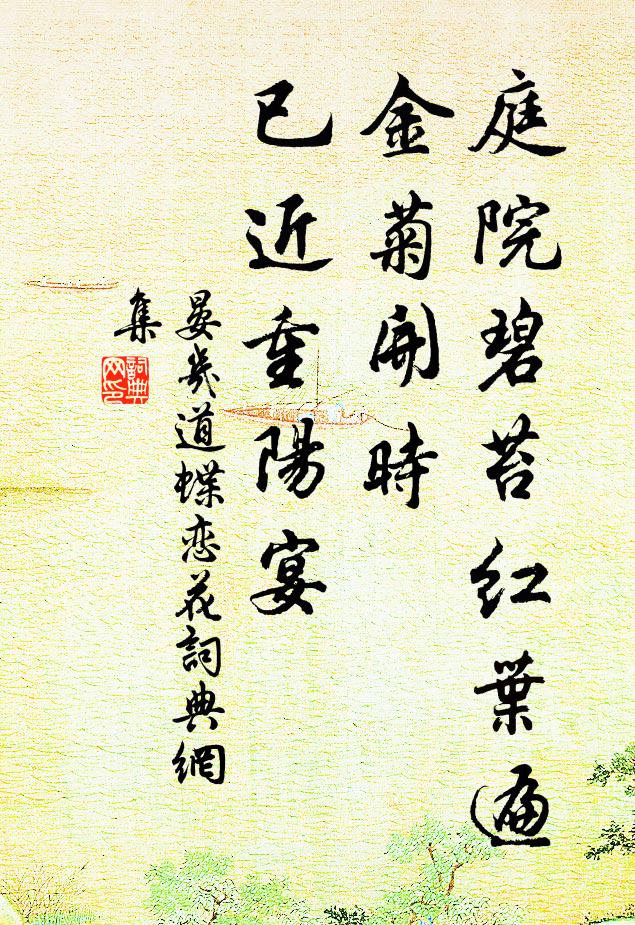 庭院碧苔红葉遍
金菊開時
已近重陽宴
晏幾道蝶恋花詞典網
集
詞典
网印